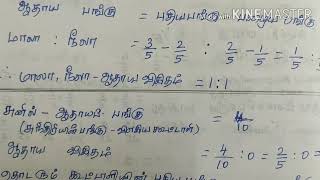 ஆதாய பங்கு = புதியபங்கு
KINEMASTER
மாலா : நீலா = 3/5 - 2/5 : 2/5 - 1/5 = 1/5 :
∴ மாலா, நீலா - ஆதாய விகிதம் = 1:1
சுனில் - ஆதாயப் பங்கு = 4/10
ஆதாய விகிதம் = 4/10 : 0 = 2/5 : 0 =